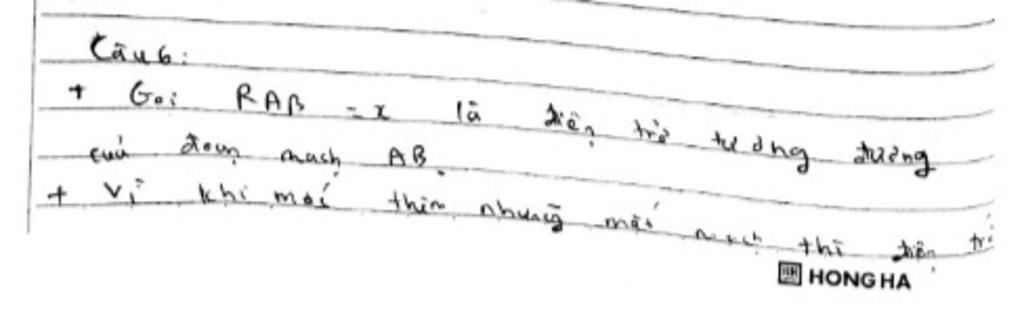 Câu 6:
+ Gọi RAB = x là điện trở tương đương
của đoạn mạch AB.
+ Vì khi mắc thêm những mắt mạch thì điện trở
HONG HA